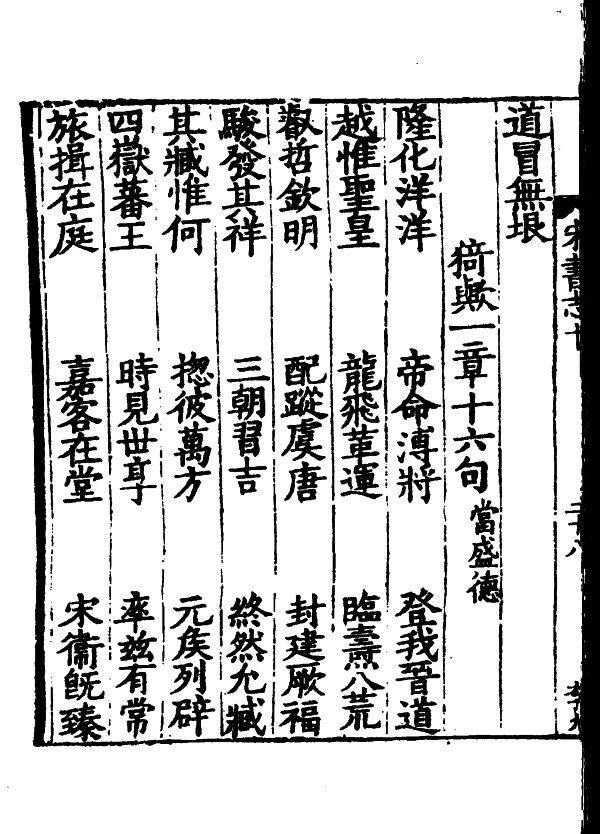 宋書志
道冒無垠
猗歟一章十六句 當盛德
隆化洋洋 帝命溥將 登我晉道
越惟聖皇 龍飛革運 臨燾八荒
叡哲欽明 配蹤虞唐 封建厥福
駿發其祥 三朝習吉 終然允臧
其臧惟何 揔彼萬方 元侯列辟
四嶽蕃王 時見世享 率兹有常
旅揖在庭 嘉客在堂 宋衞旣臻